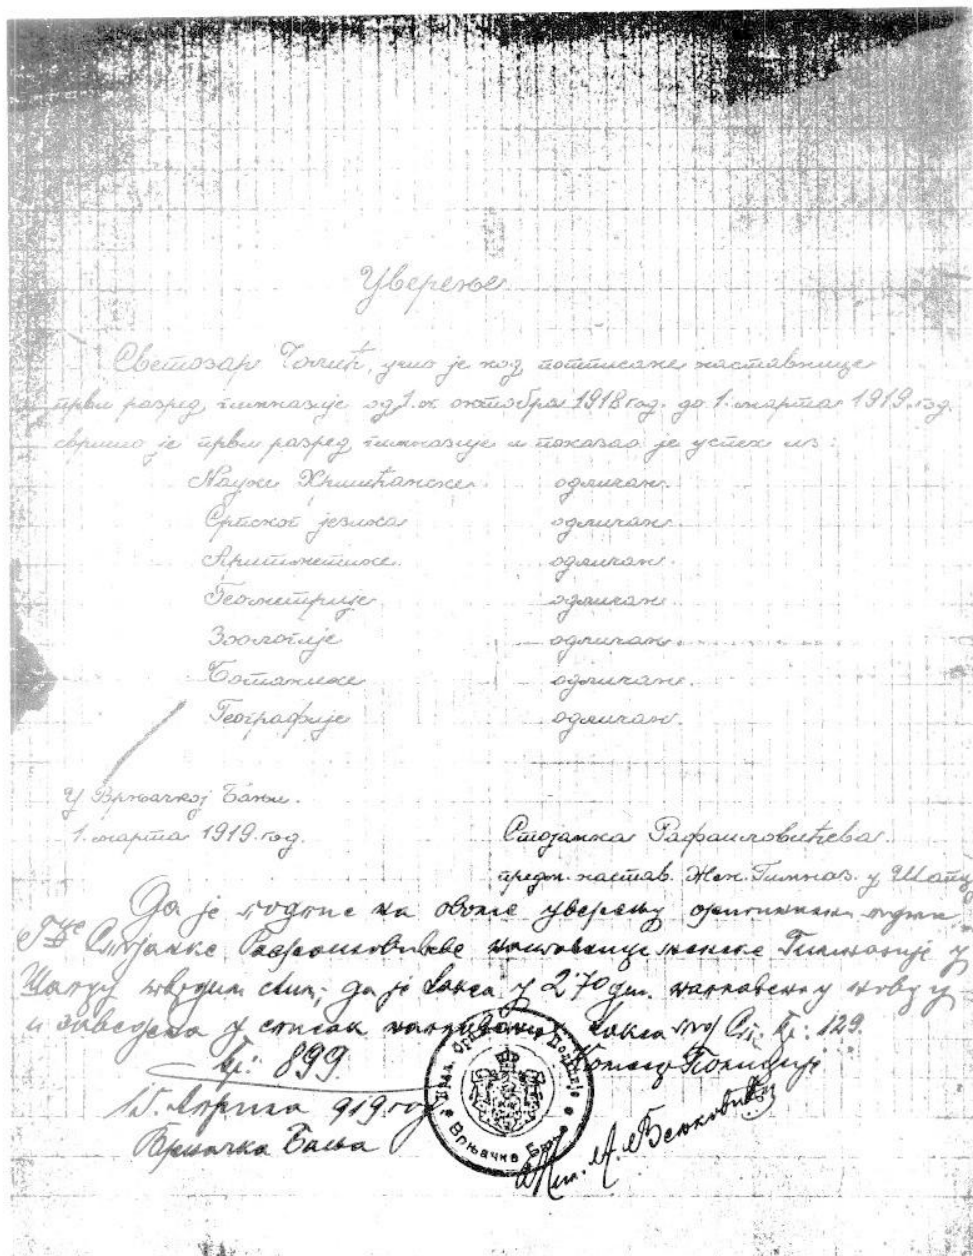 Уверење
Светозар Гочић, учио је код потписане наставнице
први разред гимназије од 1. ог октобра 1918 год. до 1. марта 1919. год.
свршио је први разред гимназије и показао је успех из:
Науке Хришћанске одличан.
Српског језика одличан.
Аритметике. одличан.
Геометрије одличан
Зоологије одличан
Ботанике одличан.
Географије одличан.
У Врњачкој Бањи.
1. марта 1919. год.
Стојанка Рафаиловићева.
предм. настав. Жен. Гимназ. у Шапцу
Да је потпис на овоме уверењу
Стојанке Рафаиловићеве наставнице женске Гимназије у
Шапцу тврдим да је такса у 2·70 дин. наплаћена у новцу
и заведена у списак такса под Ст. Бр: 129.
Бр: 899.
15. Априла 919 год
Врњачка Бања
Врњачка Бања